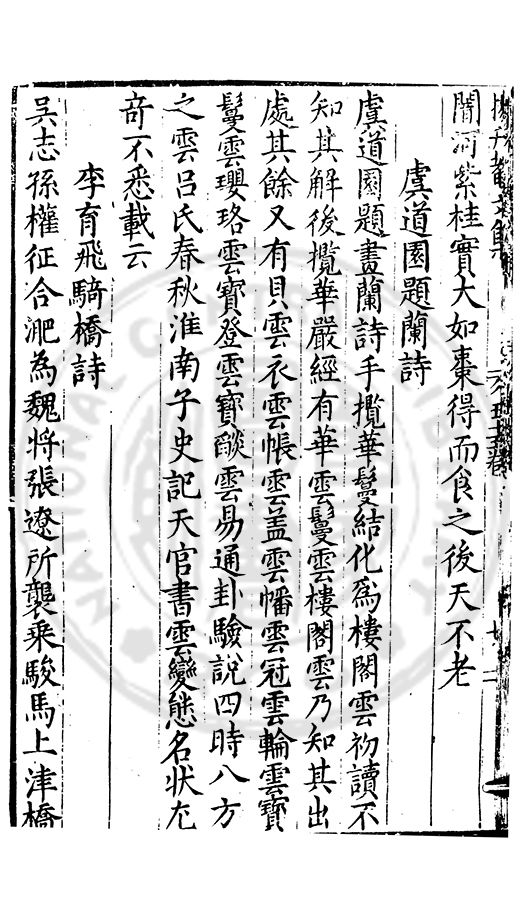 闇河紫桂實大如棗得而食之後天不老
虞道園題蘭詩
虞道園題畫蘭詩手攬華鬘結化為樓閣雲初讀不
知其解後攬華嚴經有華雲鬘雲樓閣雲乃知其出
處其餘又有貝雲衣雲帳雲盖雲幡雲冠雲輪雲寶
鬘雲瓔珞雲寶登雲寶燄雲易通卦驗說四時八方
之雲呂氏春秋淮南子史記天官書雲變態名狀尤
竒不悉載云
李育飛騎橋詩
吴志孫權征合淝為魏将張遼所襲乘駿馬上津橋